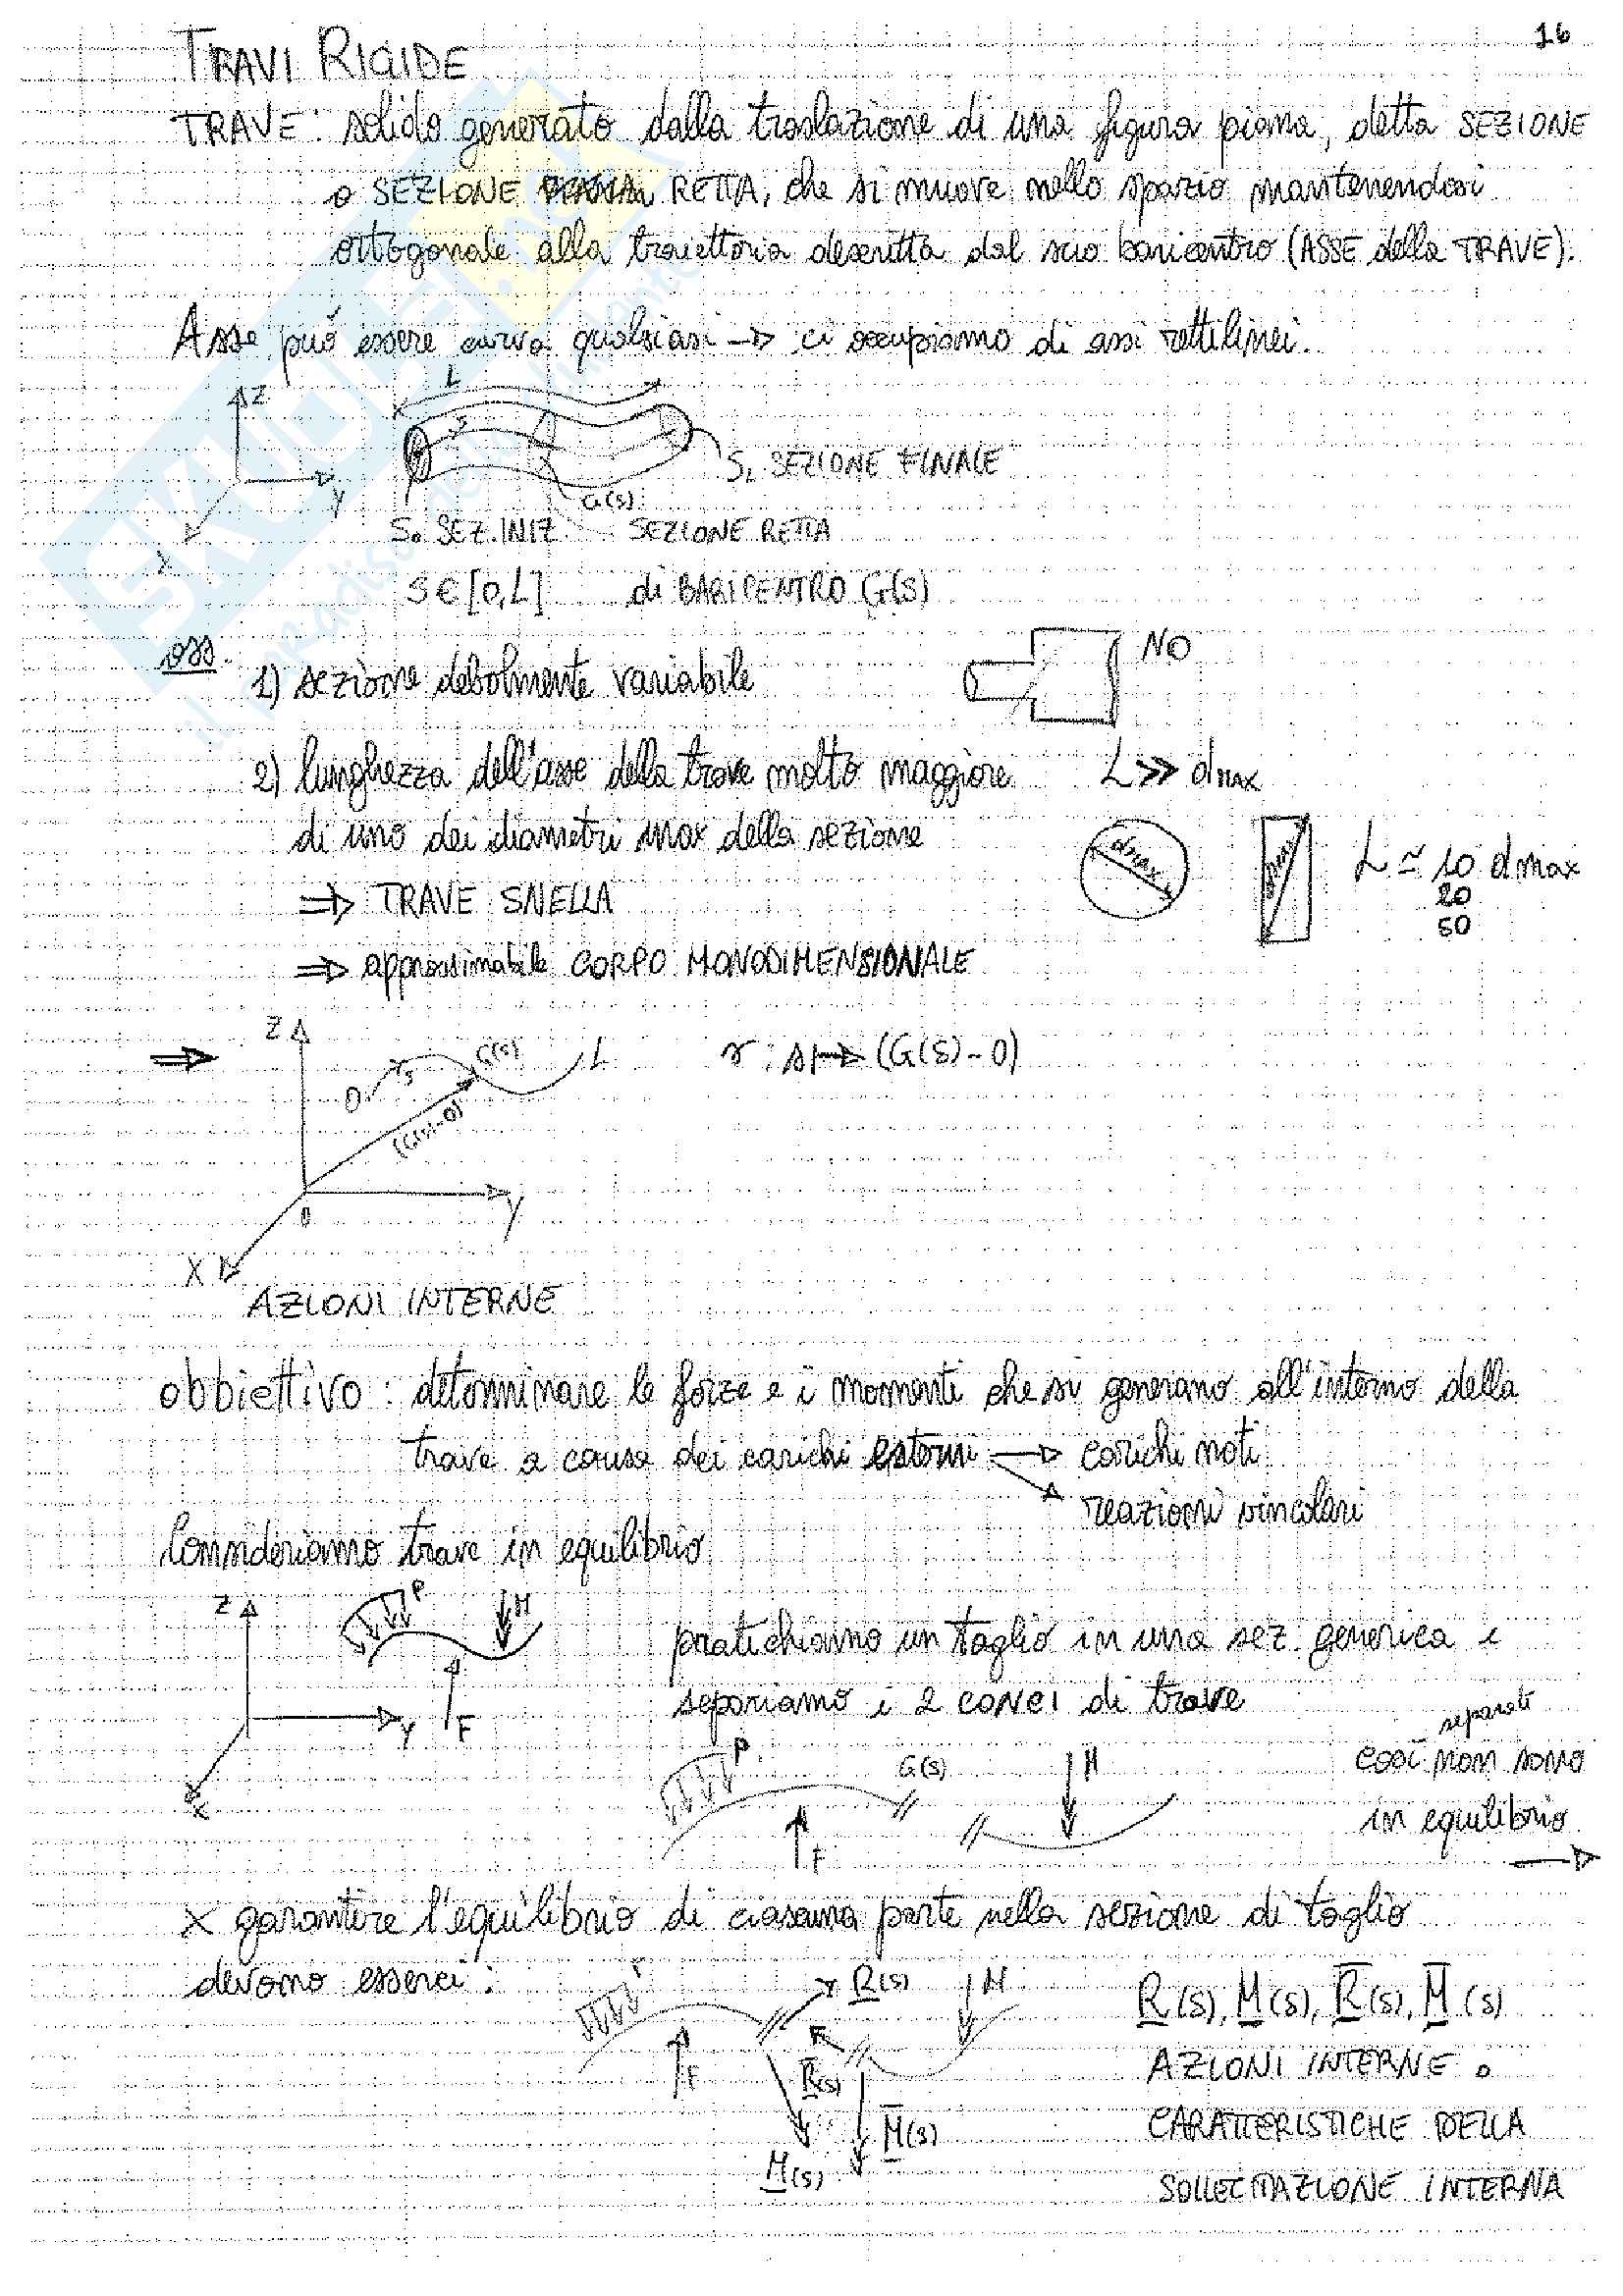 16
TRAVI RIGIDE
TRAVE: solido generato dalla traslazione di una figura piana, detta SEZIONE
o SEZIONE RETTA, che si muove nello spazio mantenendosi
ortogonale alla traiettoria descritta dal suo baricentro (ASSE della TRAVE).
Asse può essere curva qualsiasi → ci occupiamo di assi rettilinei.
Z
Y
X
L
S
G(s)
SL SEZIONE FINALE
S0 SEZ. INIZ.
SEZIONE RETTA
S∈[0,L]
di BARICENTRO G(s)
oss.
1) sezione debolmente variabile
NO
2) lunghezza dell'asse della trave molto maggiore
L >> dmax
di uno dei diametri max della sezione
dmax
dmax
L ≃ 10 dmax
20
50
⇒ TRAVE SNELLA
⇒ approssimabile CORPO MONODIMENSIONALE
⇒
Z
O
S
G(s)
L
(G(s)-O)
r : s ↦ (G(s)-O)
O
Y
X
AZIONI INTERNE
obbiettivo: determinare le forze e i momenti che si generano all'interno della
trave a causa dei carichi esterni → carichi noti
reazioni vincolari
Consideriamo trave in equilibrio
Z
P
M
Y
F
X
pratichiamo un taglio in una sez. generica e
separiamo i 2 conci di trave
P
G(s)
M
F
separati
così non sono
in equilibrio
→
X garantire l'equilibrio di ciascuna parte nella sezione di taglio
devono esserci:
F
R(s)
M
R̅(s)
M̅(s)
M(s)
R(s), M(s), R̅(s), M̅(s)
AZIONI INTERNE o
CARATTERISTICHE DELLA
SOLLECITAZIONE INTERNA